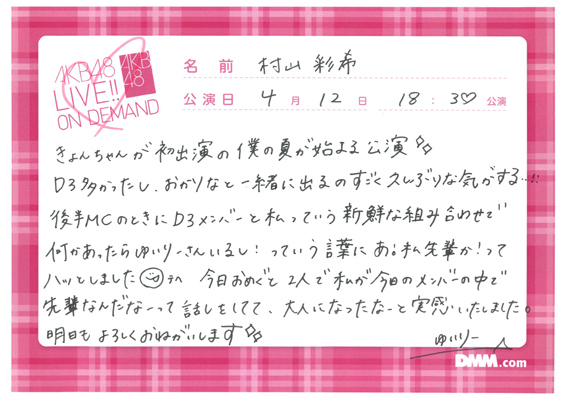 AKB48
LIVE!!
ON DEMAND
AKB
48
名前 村山彩希
公演日 4月12日 18:30公演
きょんちゃんが初出演の僕の夏が始まる公演
D3多かったし、おかりなと一緒に出るのすごく久しぶりな気がする...!!
後半MCのときにD3メンバーと私っていう新鮮な組み合わせで
何かあったらゆいりーさんいるし!っていう言葉にあ!私先輩か!って
ハッとしました 今日おめぐと2人で私が今日のメンバーの中で
先輩なんだなーって話しをしてて、大人になったなーと実感いたしました。
明日もよろしくおねがいします
ゆいりー
DMM.com